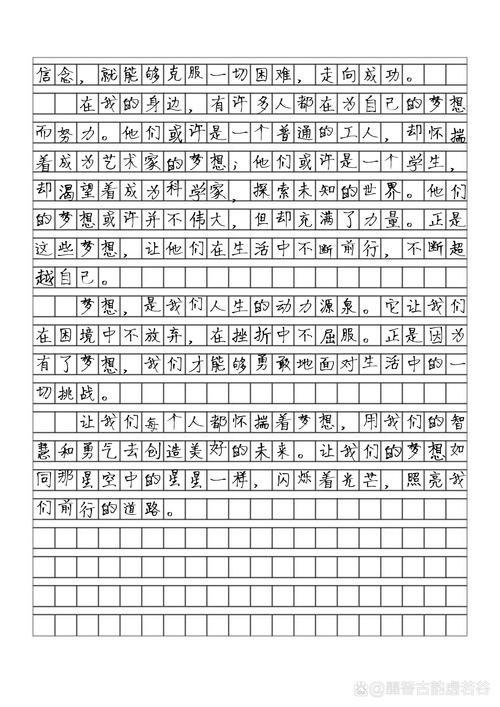 信念，就能够克服一切困难，走向成功。
在我的身边，有许多人都在为自己的梦想
而努力。他们或许是一个普通的工人，却怀揣
着成为艺术家的梦想；他们或许是一个学生，
却渴望着成为科学家，探索未知的世界。他们
的梦想或许并不伟大，但却充满了力量。正是
这些梦想，让他们在生活中不断前行，不断超
越自己。
梦想，是我们人生的动力源泉。它让我们
在困境中不放弃，在挫折中不屈服。正是因为
有了梦想，我们才能够勇敢地面对生活中的一
切挑战。
让我们每个人都怀揣着梦想，用我们的智
慧和勇气去创造美好的未来。让我们的梦想如
同那星空中的星星一样，闪烁着光芒，照亮我
们前行的道路。